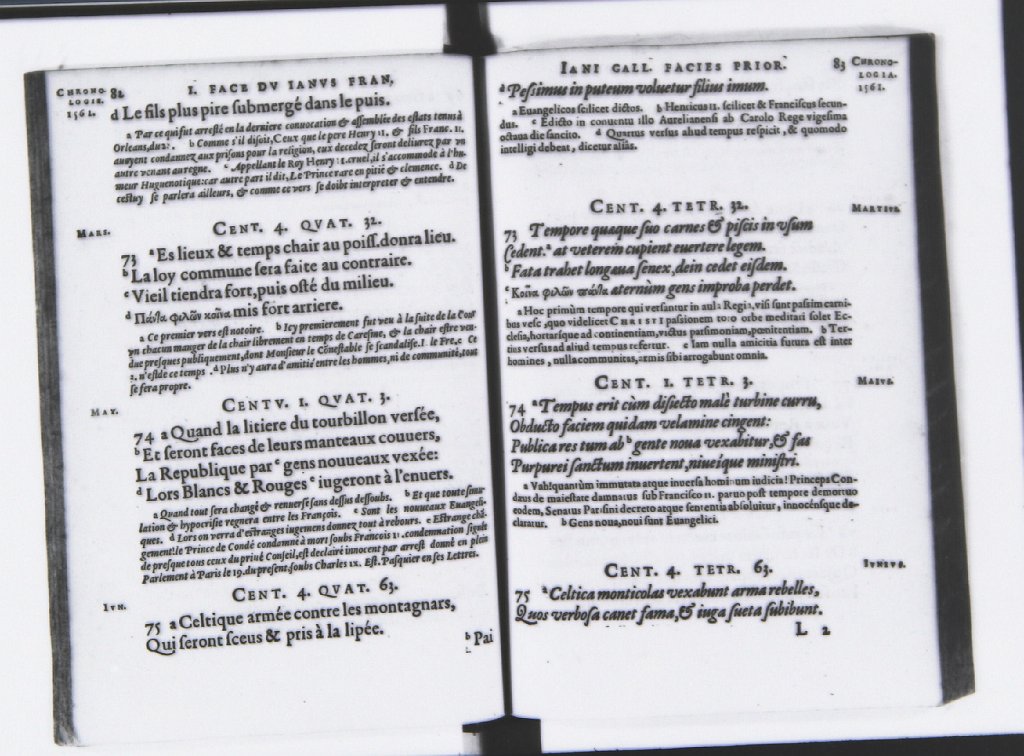 CHRONO-
LOGIE.
1561.
82 I. FACE DV IANVS FRAN,
d Le fils plus pire submergé dans le puis.
a Par ce qui fut arresté en la derniere conuocation & assemblée des estats tenus à
Orleans, b Comme s'il disoit, Ceux que le pere Henry 11, & fils Franc. 11.
auoyent condannez aux prisons pour la religion, eux decedez seront deliurez par vn
autre venant au regne. c Appellant le Roy Henry 2. cruel, il s'accommode à l'hu-
meur Huguenotique: car autre part il dit, Le Prince rare en pitié & clemence. d De
cestuy se parlera ailleurs, & comme ce vers se doibt interpreter & entendre.
MARS.
CENT. 4. QVAT. 32.
73 a Es lieux & temps chair au poiss. donra lieu.
b La loy commune sera faite au contraire.
c Vieil tiendra fort, puis osté du milieu.
d Πάντα φιλῶν κοῖνα mis fort arriere.
a Ce premier vers est notoire. b Icy premierement fut veu à la suite de la Cour
vn chacun manger de la chair librement en temps de Caresme, & la chair estre ven-
due presques publiquement, dont Monsieur le Cõnestable se scandalise. c Ce
2. n'est de ce temps. d Plus n'y aura d'amitié entre les hommes, ni de communité, tout
se fera propre.
MAY.
CENTV. I. QVAT. 3.
74 a Quand la litiere du tourbillon versée,
b Et seront faces de leurs manteaux couuers,
La Republique par c gens nouueaux vexée:
d Lors Blancs & Rouges e iugeront à l'enuers.
a Quand tout sera changé & renuersé sans dessus dessoubs. b Et que toute simu-
lation & hypocrisie regnera entre les François. c Sont les nouueaux Euangeli-
ques. d Lors on verra d'estranges iugemens donnez tout à rebours. e Estrange chã-
gement! le Prince de Condé condamné à mort soubs Francois 11. condemnation signée
de presque tous ceux du priué Conseil, est declairé innocent par arrest donné en plein
Parlement à Paris le 19. du present, soubs Charles IX. Est. Pasquier en ses Lettres.
IVN.
CENT. 4. QVAT. 63.
75 a Celtique armée contre les montagnars,
Qui seront sceus & pris à la lipée.
b Pai
L
IANI GALL. FACIES PRIOR. 83
CHRONO-
LOGIA.
1561.
d Pessimus in puteum voluetur filius imum.
a Euangelicos scilicet dictos. b Henricus 11. scilicet & Franciscus secun-
dus. c Edicto in conuentu illo Aurelianensi ab Carolo Rege vigesima
octaua die sancito. d Quartus versus aliud tempus respicit, & quomodo
intelligi debeat, dicetur aliàs.
MARTIVS.
CENT. 4. TETR. 32.
73 Tempore quaque suo carnes & piscis in vsum
Cedent. a at veterem cupient euertere legem.
b Fata trahet longæua senex, dein cedet eisdem.
c Κοῖνα φιλῶν πάντα æternùm gens improba perdet.
a Hoc primùm tempore qui versantur in aula Regia, visi sunt passim carni-
bus vesci, quo videlicet CHRISTI passionem toto orbe meditari solet Ec-
clesia, hortarsque ad continentiam, victus parsimoniam, pœnitentiam. b Ter-
tius versus ad aliud tempus refertur. c Iam nulla amicitia futura est inter
homines, nulla communitas, armis sibi arrogabunt omnia.
MAIVS.
CENT. I. TETR. 3.
74 a Tempus erit cùm disiecto malè turbine curru,
Obducto faciem quidam velamine cingent:
Publica res tum ab b gente noua vexabitur, & fas
Purpurei sanctum inuertent, niueíque ministri.
a Vah! quantùm immutata atque inuersa hominum iudicia! Princeps Con-
dæus de maiestate damnatus sub Francisco 11. paruo post tempore demortuo
eodem, Senatus Parisini decreto atque sententia absoluitur, innocénsque de-
claratur. b Gens noua, noui sunt Euangelici.
IVNIVS.
CENT. 4. TETR. 63.
75 a Celtica monticolas vexabunt arma rebelles,
Quos verbosa canet fama, & iuga sueta subibunt.
L 2